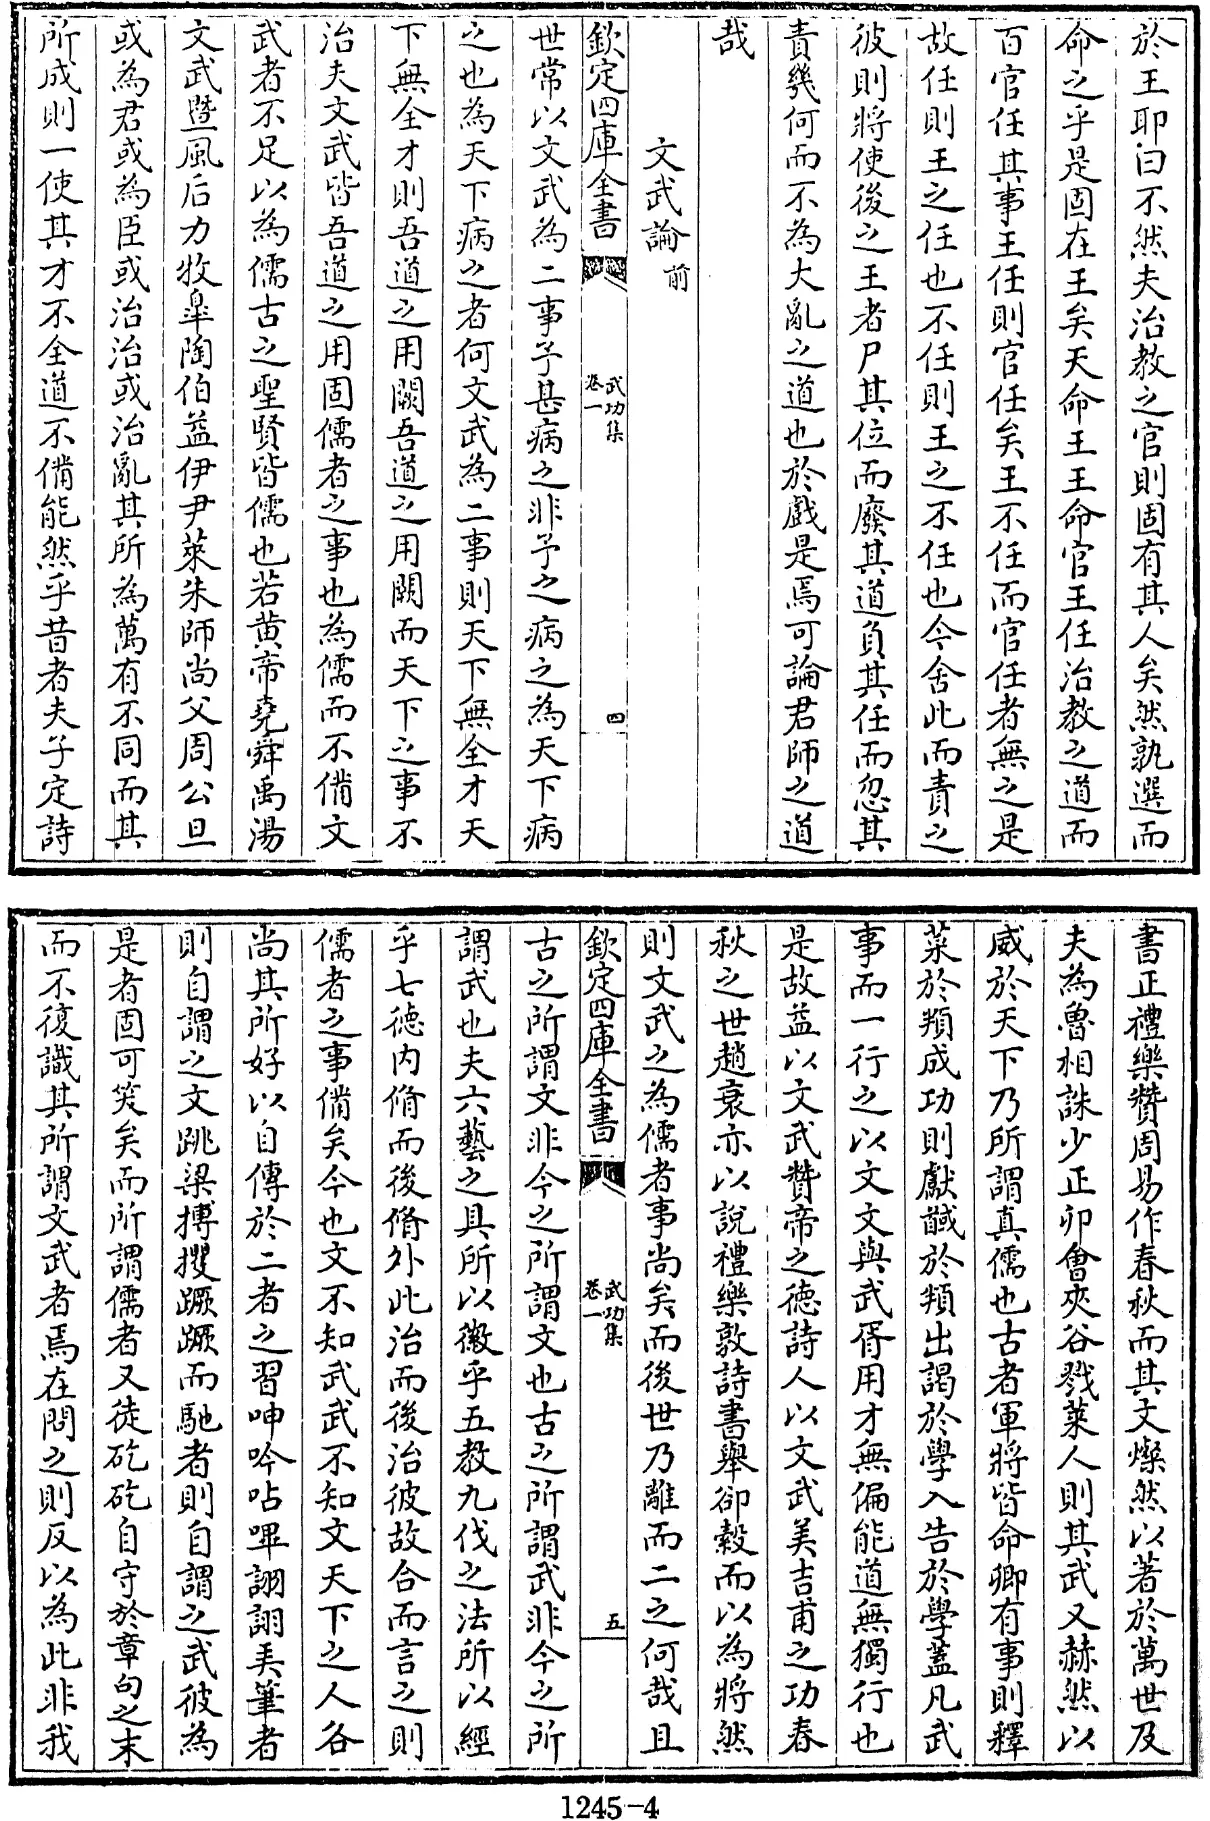 於王耶曰不然夫治教之官則固有其人矣然孰選而
命之乎是固在王矣天命王王命官王任治教之道而
百官任其事王任則官任矣王不任而官任者無之是
故任則王之任也不任則王之不任也今舍此而責之
彼則將使後之王者尸其位而廢其道負其任而忽其
責幾何而不為大亂之道也於戲是焉可論君師之道
哉
文武論前
欽定四庫全書
武功集
卷一
四
世常以文武為二事予甚病之非予之病之為天下病
之也為天下病之者何文武為二事則天下無全才天
下無全才則吾道之用闕吾道之用闕而天下之事不
治夫文武皆吾道之用固儒者之事也為儒而不備文
武者不足以為儒古之聖賢皆儒也若黄帝堯舜禹湯
文武暨風后力牧臯陶伯益伊尹萊朱師尚父周公旦
或為君或為臣或治治或治亂其所為萬有不同而其
所成則一使其才不全道不備能然乎昔者夫子定詩
書正禮樂贊周易作春秋而其文燦然以著於萬世及
夫為魯相誅少正卯會夾谷戮萊人則其武又赫然以
威於天下乃所謂真儒也古者軍將皆命卿有事則釋
菜於頖成功則獻馘於頖出謁於學入告於學蓋凡武
事而一行之以文文與武胥用才無偏能道無獨行也
是故益以文武贊帝之德詩人以文武美吉甫之功春
秋之世趙衰亦以說禮樂敦詩書舉郤縠而以為將然
則文武之為儒者事尚矣而後世乃離而二之何哉且
欽定四庫全書
武功集
卷一
五
古之所謂文非今之所謂文也古之所謂武非今之所
謂武也夫六藝之具所以徽乎五教九伐之法所以經
乎七德内脩而後脩外此治而後治彼故合而言之則
儒者之事備矣今也文不知武武不知文天下之人各
尚其所好以自傳於二者之習呻吟呫嗶詡詡弄筆者
則自謂之文跳梁摶攫蹶蹶而馳者則自謂之武彼為
是者固可笑矣而所謂儒者又徒矻矻自守於章句之末
而不復識其所謂文武者焉在問之則反以為此非我
1245-4